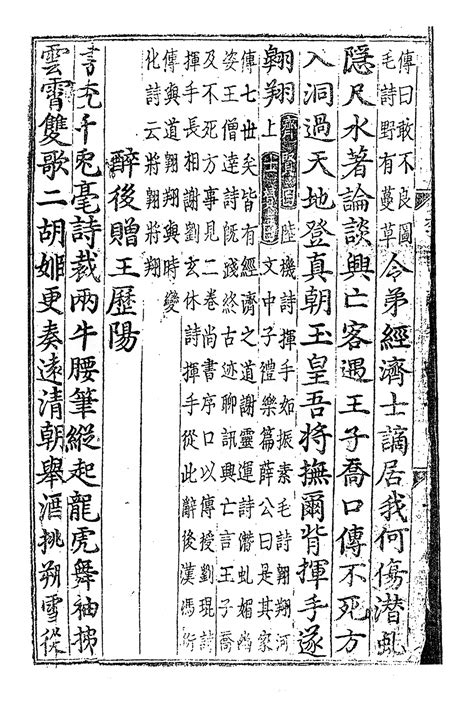 傳曰敢不良圖
毛詩野有蔓草
令弟經濟士謫居我何傷潛虬
隱尺水著論談興亡客遇王子喬口傳不死方
入洞過天地登真朝玉皇吾將撫爾背揮手遂
翱翔
齊賢曰陸機詩揮手如振素毛詩翱翔河
上士贇曰文中子禮樂篇薛公曰是其家
傳七世矣皆有經濟之道謝靈運詩潛虬媚幽
姿王僧達詩既踐終古迹聊訊興亡言王子喬
及不死方事見二卷尚書序口以傳授劉琨詩
揮手長相謝劉玄休詩揮手從此辭後漢馮衍
傳與道翱翔與時變
化詩云將翱將翔
醉後贈王歷陽
書禿千兎毫詩裁兩牛腰筆縱起龍虎舞袖拂
雲霄雙歌二胡姬更奏遠清朝舉酒挑朔雪從